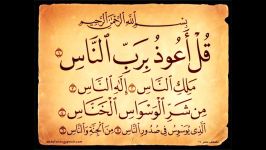 بِسْمِ اللَّهِ الرَّحْمَٰنِ الرَّحِيمِ
قُلْ أَعُوذُ بِرَبِّ النَّاسِ
مَلِكِ النَّاسِ إِلَٰهِ النَّاسِ
مِن شَرِّ الْوَسْوَاسِ الْخَنَّاسِ
الَّذِي يُوَسْوِسُ فِي صُدُورِ النَّاسِ مِنَ الْجِنَّةِ وَالنَّاسِ